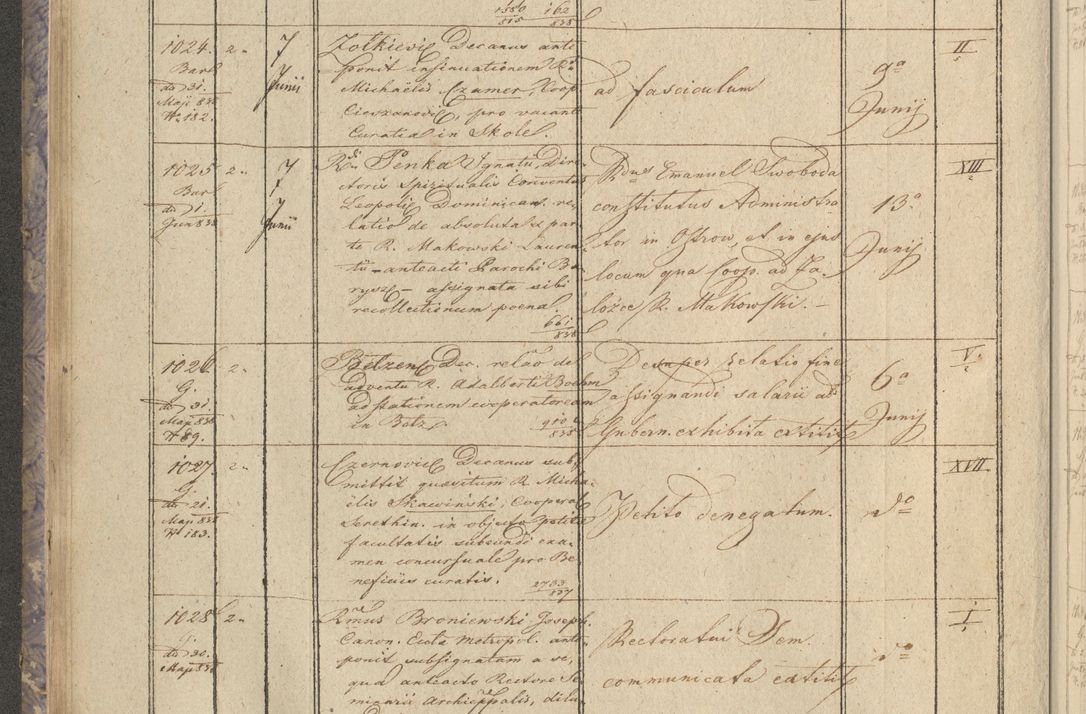 1550 162
515 838
1024. 2.
Bar
do 31.
Maji 838
N. 182.
7
7
Junii
Zołkievi Decanus ante
ponit insinuationem R.
Michaëlis Czamer, Coop.
Cieszanovi, pro vacant
Curatia in Skole.
ad fasciculum
9a
Junij
II
1025 2.
Bar
do 1.
Juni 838
7
7
Junii
R. Penka Ignatii, Dire-
ctoris Spiritualis Conventus
Leopolis Dominican. re-
latio de absoluta ex par-
te R. Makowski Lauren-
tii - anteacti Parochi Ba-
rysz - assignata sibi
recollectionum poena.
661
838
Rdnus Emanuel Swoboda
constitutus Administra
tor in Ostrow, et in ejus
locum qua Coop. ad Za-
lożce R. Makowski. -
13a
Junij
XIII
1026 2.
G.
do 31
Maji 838
N 89.
Belzen Dec. relão de
adventu R. Adalberti Boehm
ad stationem cooperatoream
in Belz
910
838
Desuper relatio fine
assignandi salarii ad
Gubern. exhibita extitit
6a
Junij
V.
1027 2.
G.
do 21.
Maji 838
N 183.
Czernovi Decanus sub-
mittit quaesitum R. Micha-
ëlis Skawiński, Cooperat.
Serethin. in objecto petitae
facultatis subeundi exa-
men concursuale pro Be-
neficiis curatis.
2733
837
Petito denegatum.
do
XVII
1028 2.
do 30.
Maji 838
Rmus Broniewski Joseph.
Canon. Eccla Metropol. ante
ponit subsignatam a se,
qua anteacto Rectore Se-
minarii Archieppalis, dilu-
Rectoratui Sem.
communicata extitit
do
I.